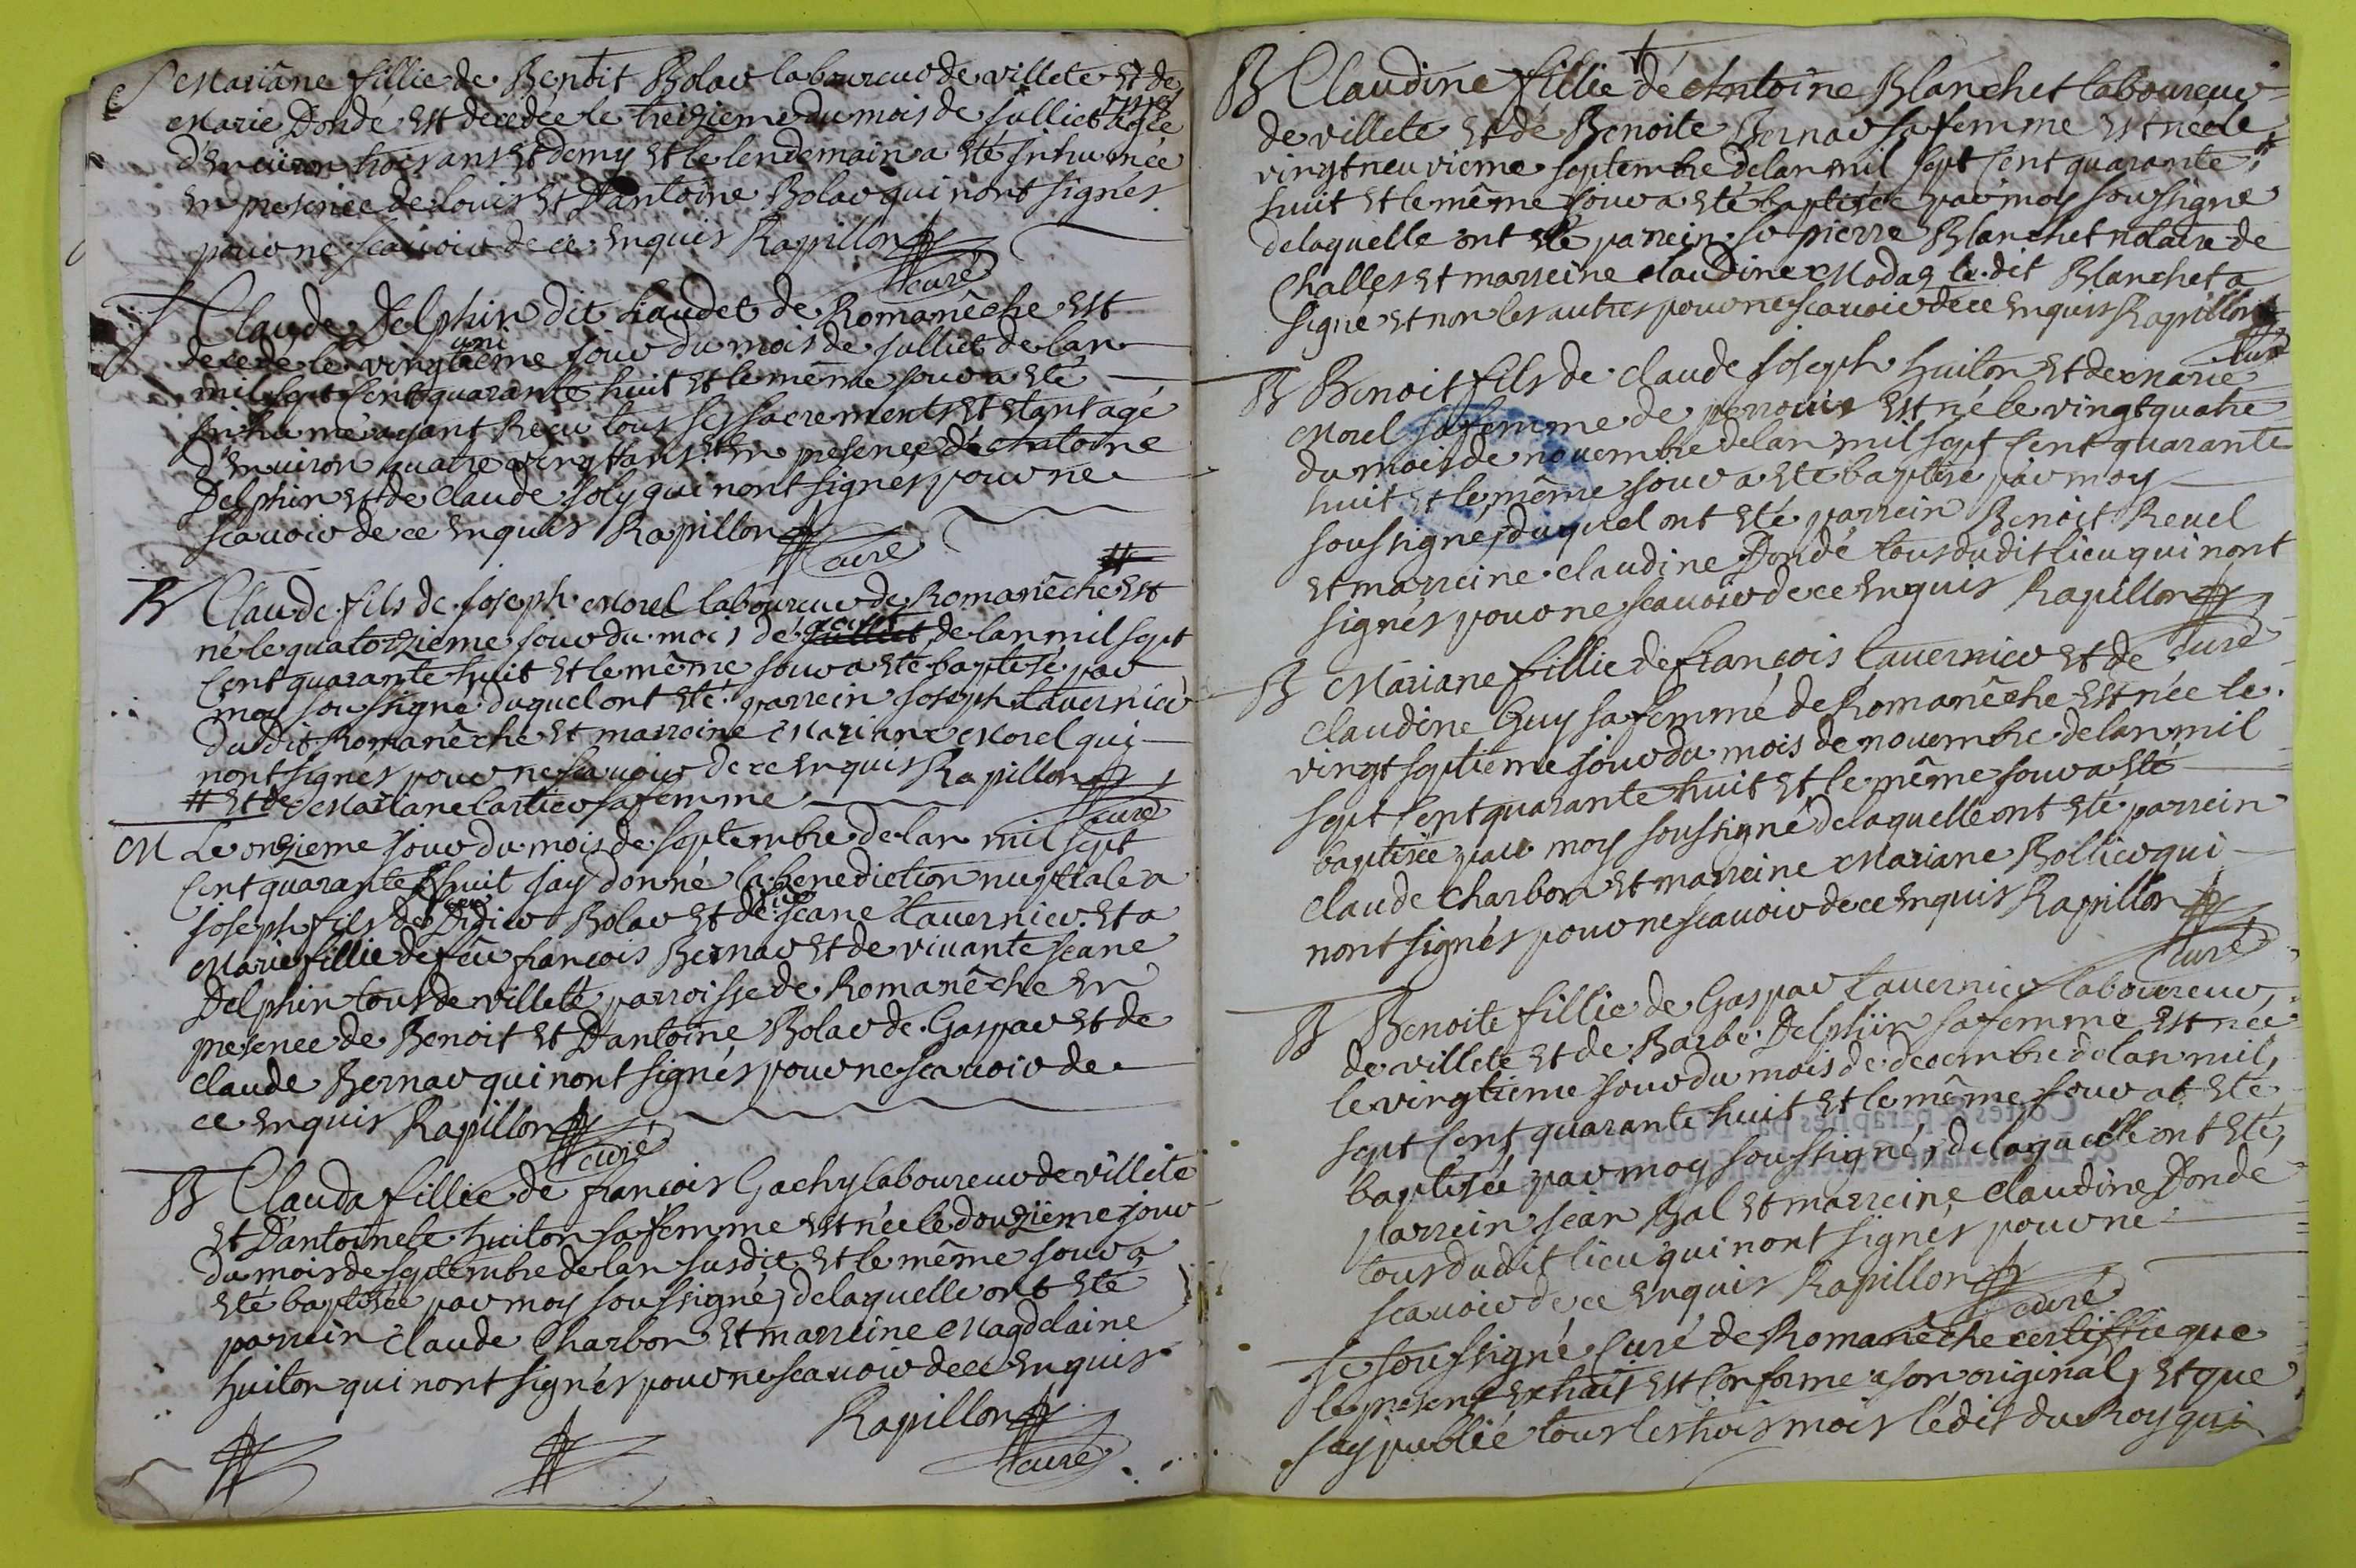 S Mariane fillie de Benoit Bolar laboureur de villete et de
Marie Dondé est decedée le treizieme du mois de julliet agée
d'environ trois ans et demy et le lendemain a eté inhumée
en presence de louis et D'antoine Bolar qui n'ont signés
pour ne scavoir de ce enquis Rapillon
curé
S Claude Delphin dit Gaudet de Romanêche est
uni
decede le vingtieme jour du mois de julliet de lan
mil sept cent quarante huit et le même jour a eté
inhumé ayant Recu tous ses sacrements et etant agé
d'environ quatre vingt ans et en presence de Antoine
Delphin et de Claude Joly qui n'ont signés pour ne
scavoir de ce enquis Rapillon
curé
#
B Claude fils de joseph Morel laboureur de Romanêche est
né le quatorzieme jour du mois de julliet de lan mil sept
cent quarante huit et le même jour a eté baptisé par
moy soussigné duquel ont eté parrein joseph tavernier
dudit Romanêche et marreine Mariane Morel qui
nont signés pour ne scavoir de ce enquis Rapillon
curé
# et de Mariane Cartier sa femme
M Le onzieme jour du mois de septembre de lan mil sept
cent quarante huit jay donné la benediction nuptiale a
joseph fils de Didier Bolar et de jeane tavernier et a
Marie fillie de feu francois Bernar et de vivante jeane
Delphin tous de villete parroisse de Romanêche en
presence de Benoit et D'antoine Bolar de Gaspar et de
claude Bernar qui nont signés pour ne scavoir de
ce enquis Rapillon
curé
B Clauda fillie de francois Gachy laboureur de villete
et D'antoinete huiton sa femme est née le douzieme jour
du mois de septembre de lan susdit et le même jour a
eté baptisée par moy soussigné, de laquelle ont eté
parrein claude Charbon et marreine Magdelaine
huiton qui nont signés pour ne scavoir de ce enquis
Rapillon
curé
B Claudine fillie de Antoine Blanchet laboureur
de villete et de Benoite Bernar sa femme est née le
vingt neuvieme septembre de lan mil sept cent quarante
huit et le même jour a eté baptisée par moy soussigné
de laquelle ont eté parrein sr pierre Blanchet notaire de
Challes et marreine claudine Modas le dit Blanchet a
signé et non les autres pour ne scavoir de ce enquis Rapillon
curé
B Benoit fils de claude joseph huiton et de Marie
Morel sa femme de perrouis est né le vingt quatre
du mois de novembre de lan mil sept cent quarante
huit et le même jour a eté baptisé par moy
soussigné, duquel ont eté parrein Benoit Revel
et marreine claudine Dondé tous dudit lieu qui nont
signés pour ne scavoir de ce enquis Rapillon
curé
B Mariane fillie de françois tavernier et de
claudine Guy sa femme de Romanêche est née le
vingt septieme jour du mois de novembre de lan mil
sept cent quarante huit et le même jour a eté
baptisée par moy soussigné de laquelle ont eté parrein
claude Charbon et marreine Mariane Bollier qui
nont signés pour ne scavoir de ce enquis Rapillon
curé
B Benoite fillie de Gaspar tavernier laboureur
de villete et de Barbe Delphin sa femme est née
le vingtieme jour du mois de decembre de lan mil
sept cent quarante huit et le même jour at eté
baptisée par moy soussigné, de laquelle ont eté
parrein jean Bal et marreine claudine Donde
tous dudit lieu qui nont signés pour ne
scavoir de ce enquis Rapillon
curé
Je soussigné Curé de Romanêche certiffie que
le present extrait est Conforme a son original, et que
jay publié tous les trois mois lédit du Roy qui